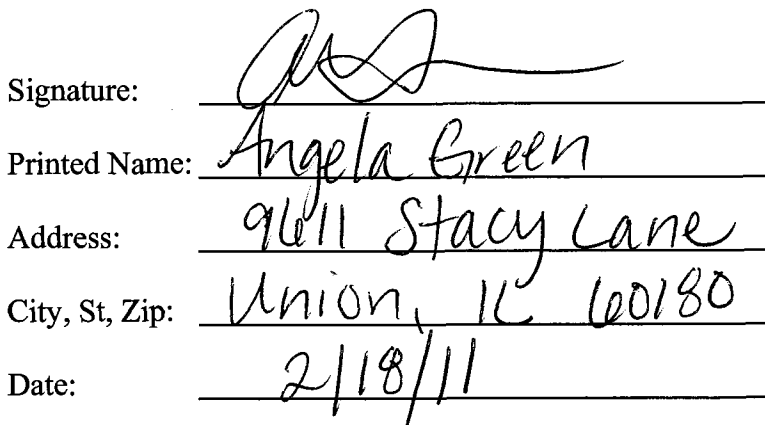 Signature:
Printed Name: Angela Green
Address: 9611 Stacy Lane
City, St, Zip: Union, IL 60180
Date: 2/18/11